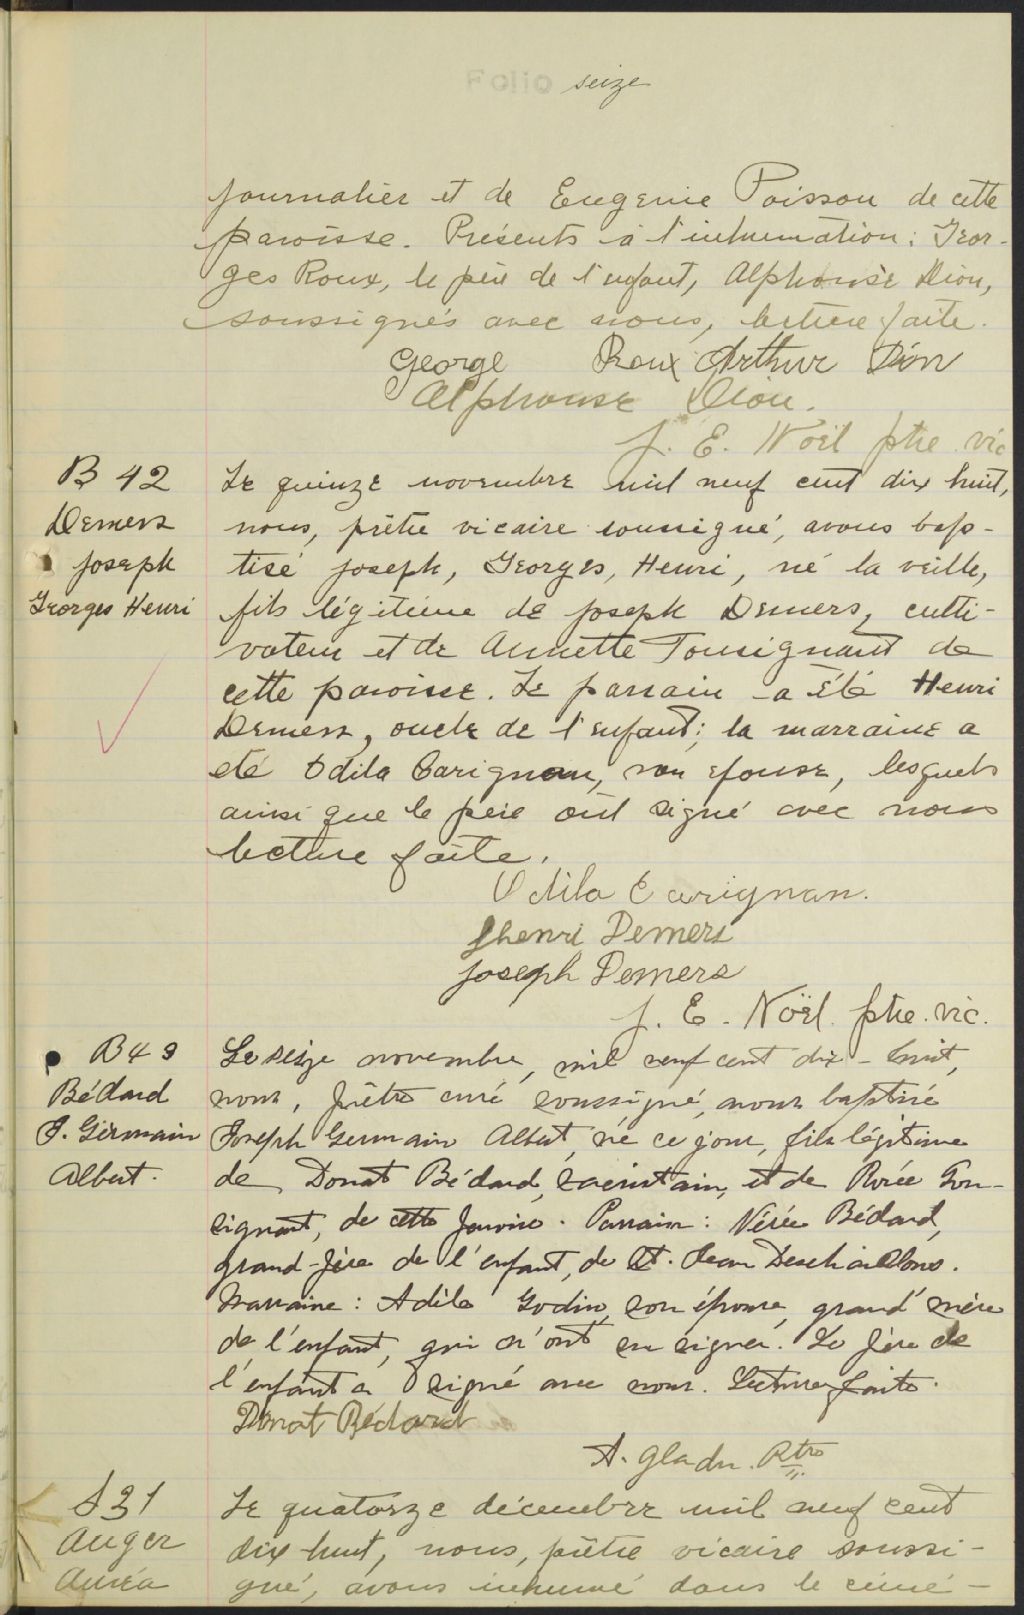 Folio seize
journalier et de Eugenie Poisson de cette
paroisse. Présents à l'inhumation: Geor-
ges Roux, le père de l'enfant, Alphonse Dion,
soussignés avec nous, lecture faite.
George Roux Arthur Dion
Alphonse Dion.
J. E. Noël ptre vic
B 42
Demers
Joseph
Georges Henri
Le quinze novembre mil neuf cent dix huit,
nous, prêtre vicaire soussigné, avons bap-
tisé Joseph, Georges, Henri, né la veille,
fils légitime de Joseph Demers, culti-
vateur et de Annette Tousignant de
cette paroisse. Le parrain a été Henri
Demers, oncle de l'enfant; la marraine a
été Odila Carignan, son épouse, lesquels
ainsi que le père ont signé avec nous
lecture faite.
Odila Carignan.
Jhenri Demers
Joseph Demers
J. E. Noël ptre. vic.
B 43
Bédard
J. Germain
Albert.
Le seize novembre, mil neuf cent dix-huit,
nous, prêtre curé soussigné, avons baptisé
Joseph Germain Albert, né ce jour, fils légitime
de Donat Bédard, sacristain, et de Tou-
signant, de cette paroisse. Parrain: Bédard,
grand-père de l'enfant, de St. Jean Deschaillons.
Marraine: Adéla Godin, son épouse, grand'mère
de l'enfant, qui n'ont su signer. Le père de
l'enfant a signé avec nous. Lecture faite.
Donat Bédard
A. Gladu. Ptre
S 31
Auger
Auréa
Le quatorze décembre mil neuf cent
dix huit, nous, prêtre vicaire soussi-
gné, avons inhumé dans le cime-